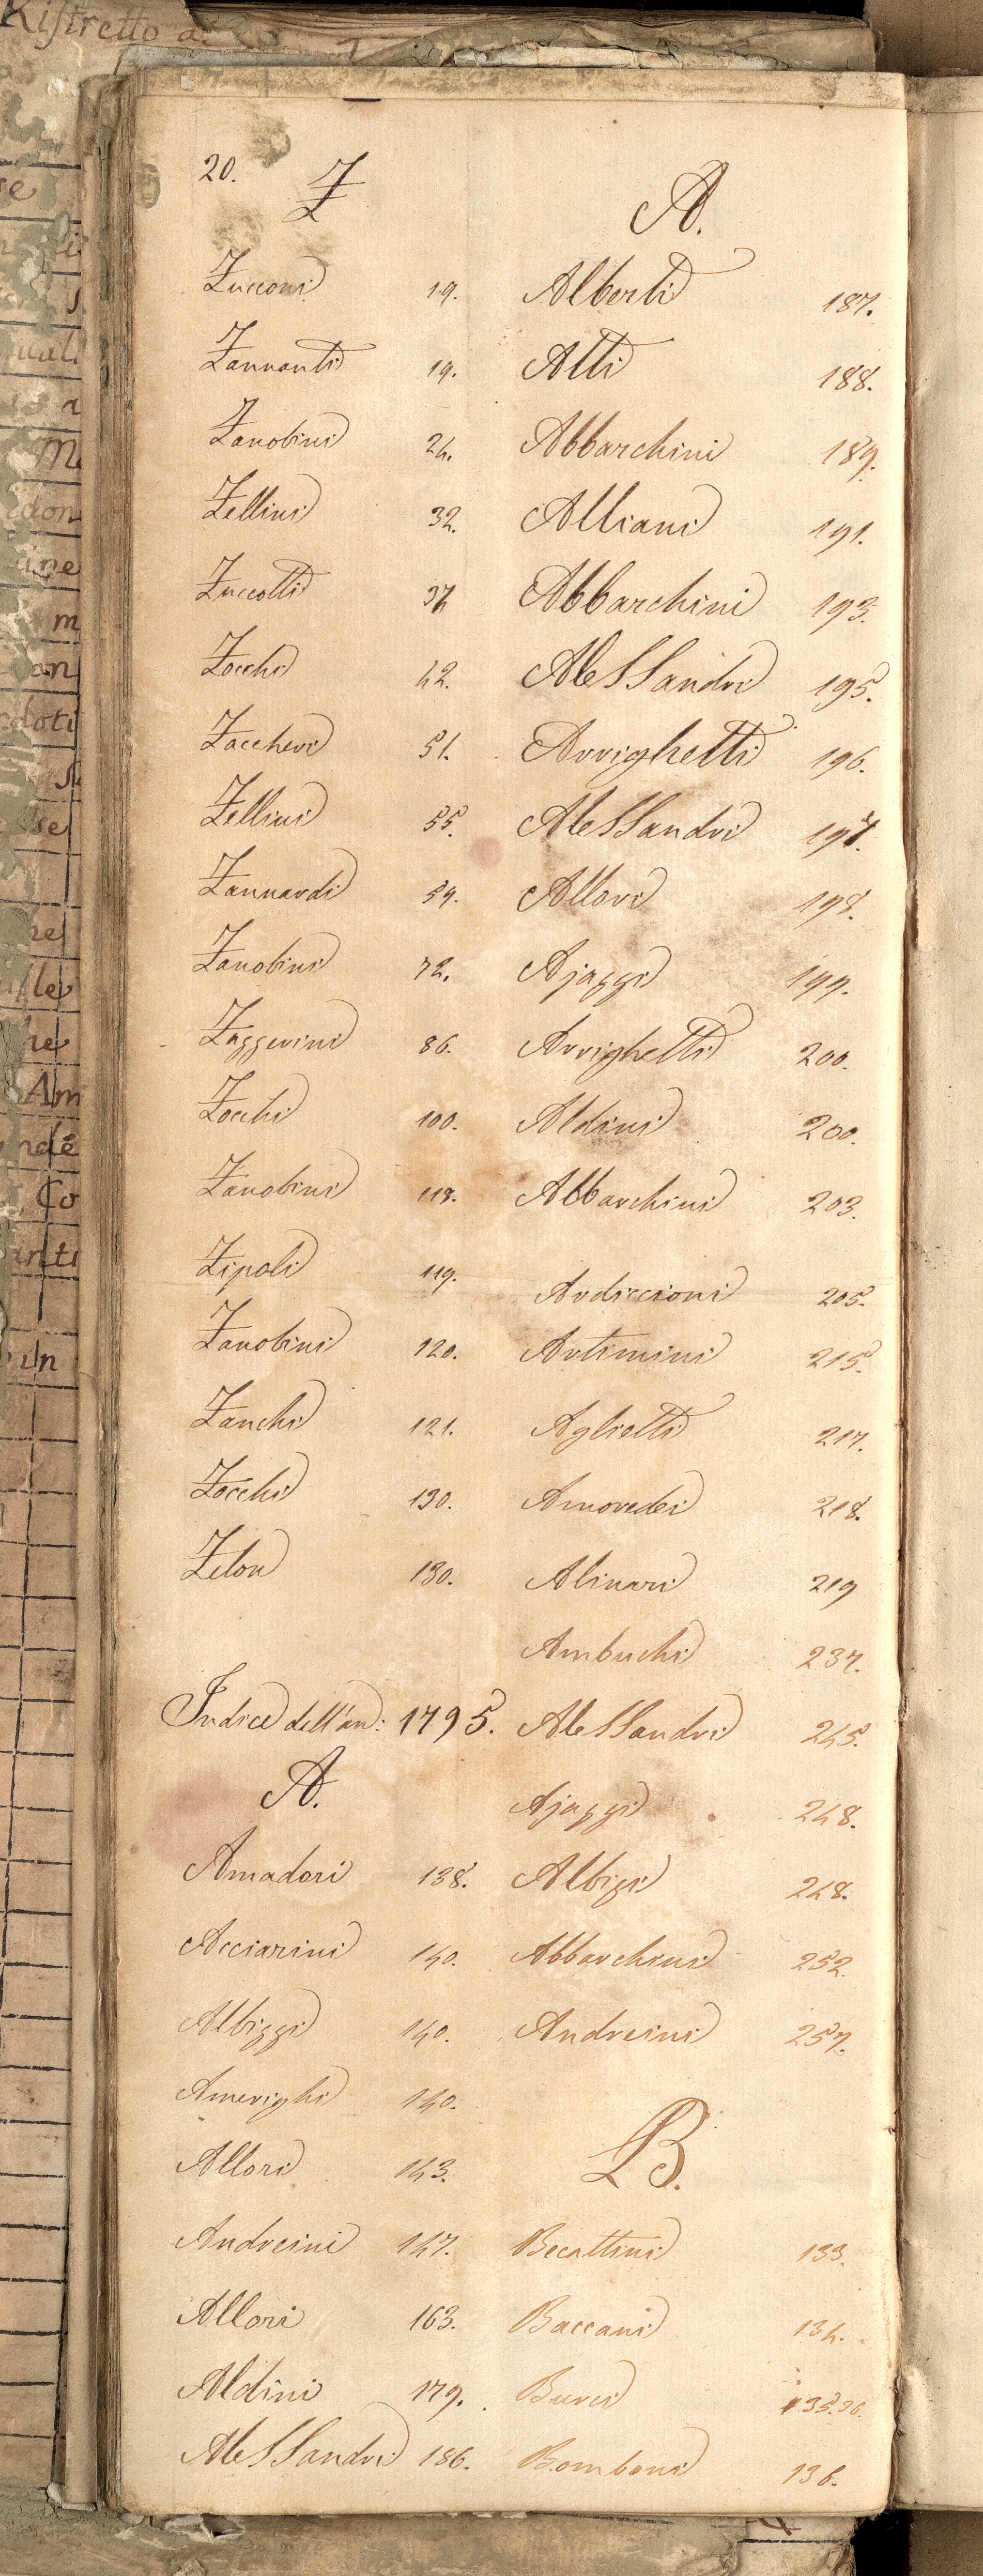 Ristretto d
20.
Z
Zucconi 19.
Zannonti 19.
Zanobini 24.
Zellini 32.
Zuccotti 34
Zocchi 42.
Zaccheri 51.
Zellini 55.
Zannardi 59.
Zanobini 72.
Zaggerini 86.
Zocchi 100.
Zanobini 118.
Zipoli 119.
Zanobini 120.
Zanchi 121.
Zocchi 130.
Zelon 130.
Indice dell'an: 1795.
A.
Amadori 138.
Acciarini 140.
Albiggi 140.
Amerighi 140.
Allori 143.
Andreini 147.
Allori 163.
Aldini 179.
Alessandri 186.
A.
Alberti 187.
Alti 188.
Abbarchini 189.
Alliani 191.
Abbarchini 193.
Alessandri 195.
Arrighetti 196.
Alessandri 197.
Allori 198.
Ajaggi 199.
Arrighetti 200.
Aldini 200.
Abbarchini 203.
Ardiccioni 205.
Artimini 215.
Aglietti 217.
Amoredei 218.
Alinari 219
Ambuchi 237.
Alessandri 245.
Ajaggi 248.
Albigi 248.
Abbarchini 252.
Andreini 257.
B.
Becattini 133.
Baccani 134.
Burci 135.36.
Bomboni 136.